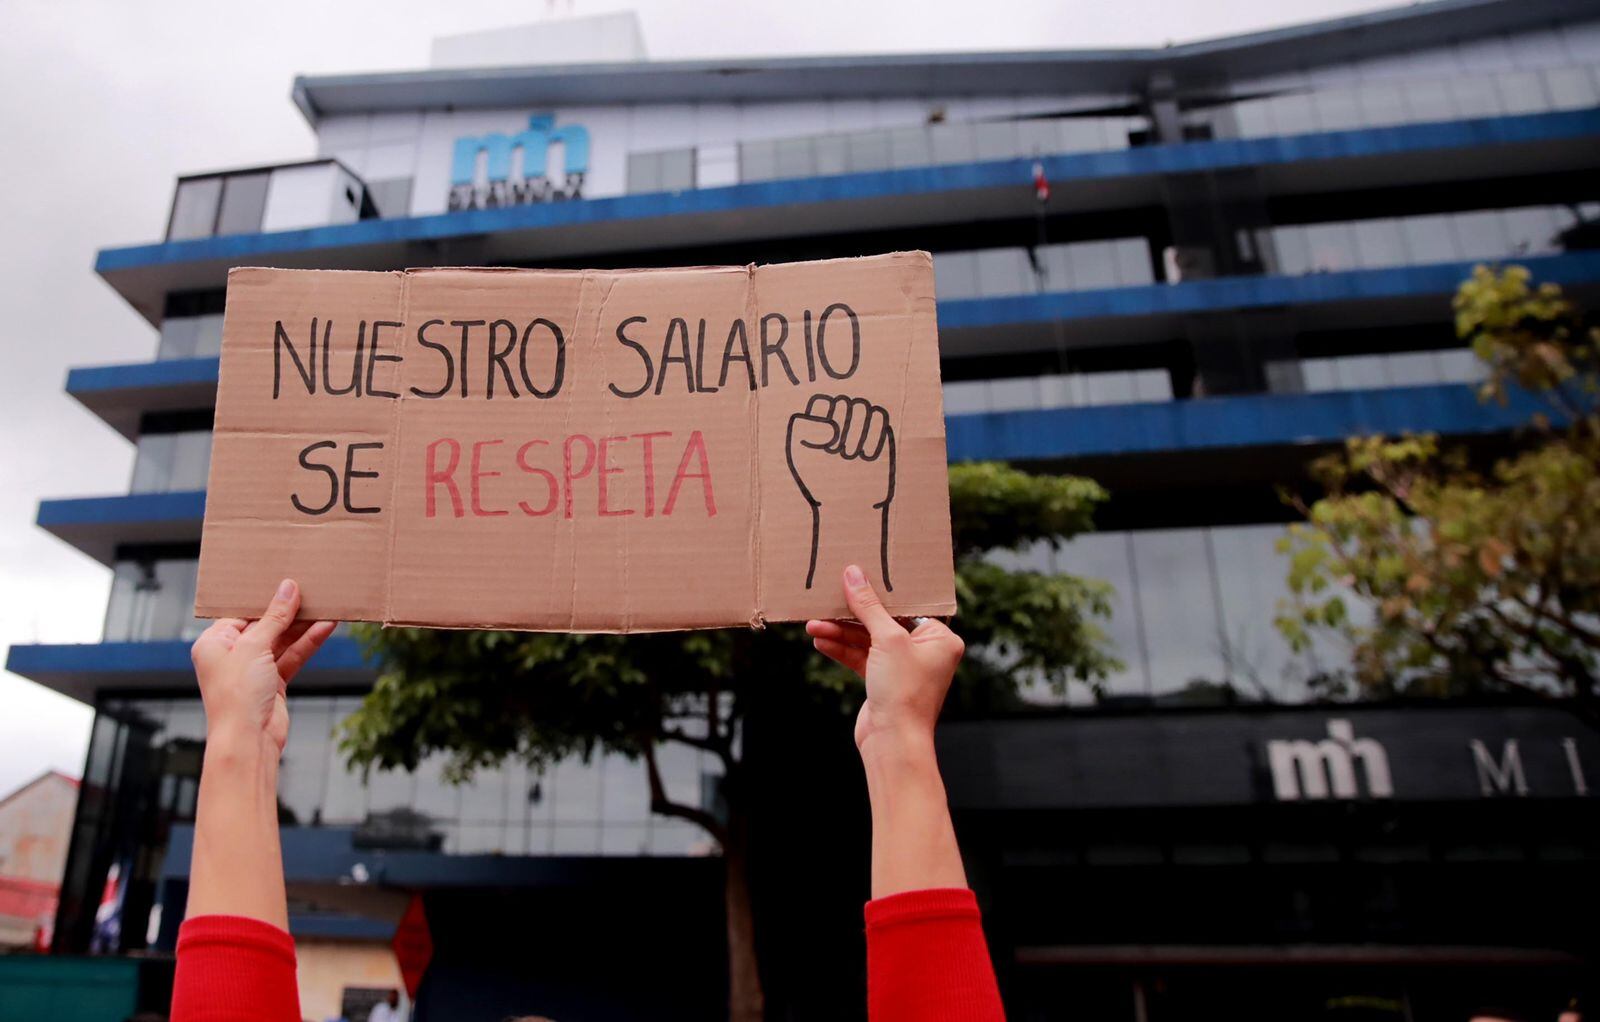 mh
NUESTRO SALARIO
SE RESPETA
mh MI